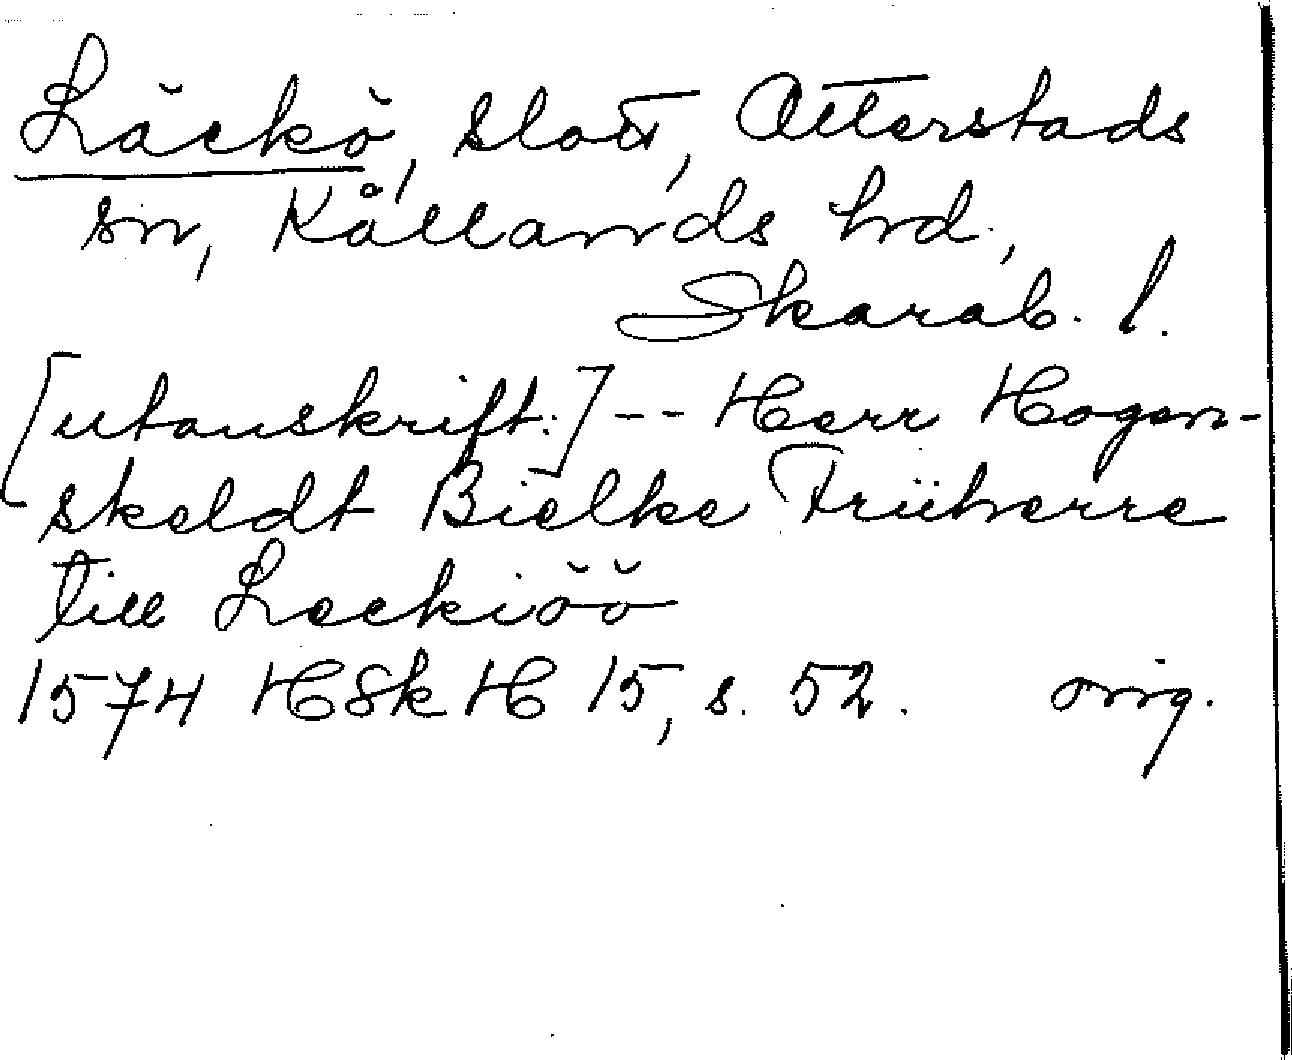 Läckö, slott, Otterstads
sn, Kållands hrd.,
Skarab. l.
[utanskrift:] -- Herr Hogen-
skeldt Bielke Friiherre
till Leckiöö
1574 HSkH 15, s. 52. orig.